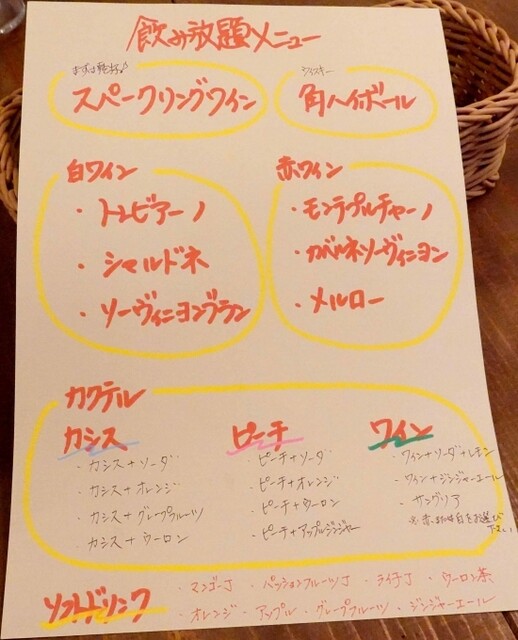 飲み放題メニュー
まずは乾杯♪
スパークリングワイン
ウィスキー
角ハイボール
白ワイン
・トレビアーノ
・シャルドネ
・ソーヴィニヨンブラン
赤ワイン
・モンテプルチャーノ
・カベルネソーヴィニヨン
・メルロー
カクテル
カシス
・カシス+ソーダ
・カシス+オレンジ
・カシス+グレープフルーツ
・カシス+ウーロン
ピーチ
・ピーチ+ソーダ
・ピーチ+オレンジ
・ピーチ+ウーロン
・ピーチ+アップルジンジャー
ワイン
・ワイン+ソーダ+レモン
・ワイン+ジンジャーエール
・サングリア
※赤または白をお選び
下さい
ソフトドリンク
・マンゴーJ ・パッションフルーツJ ・ライチJ ・ウーロン茶
・オレンジ ・アップル ・グレープフルーツ ・ジンジャーエール